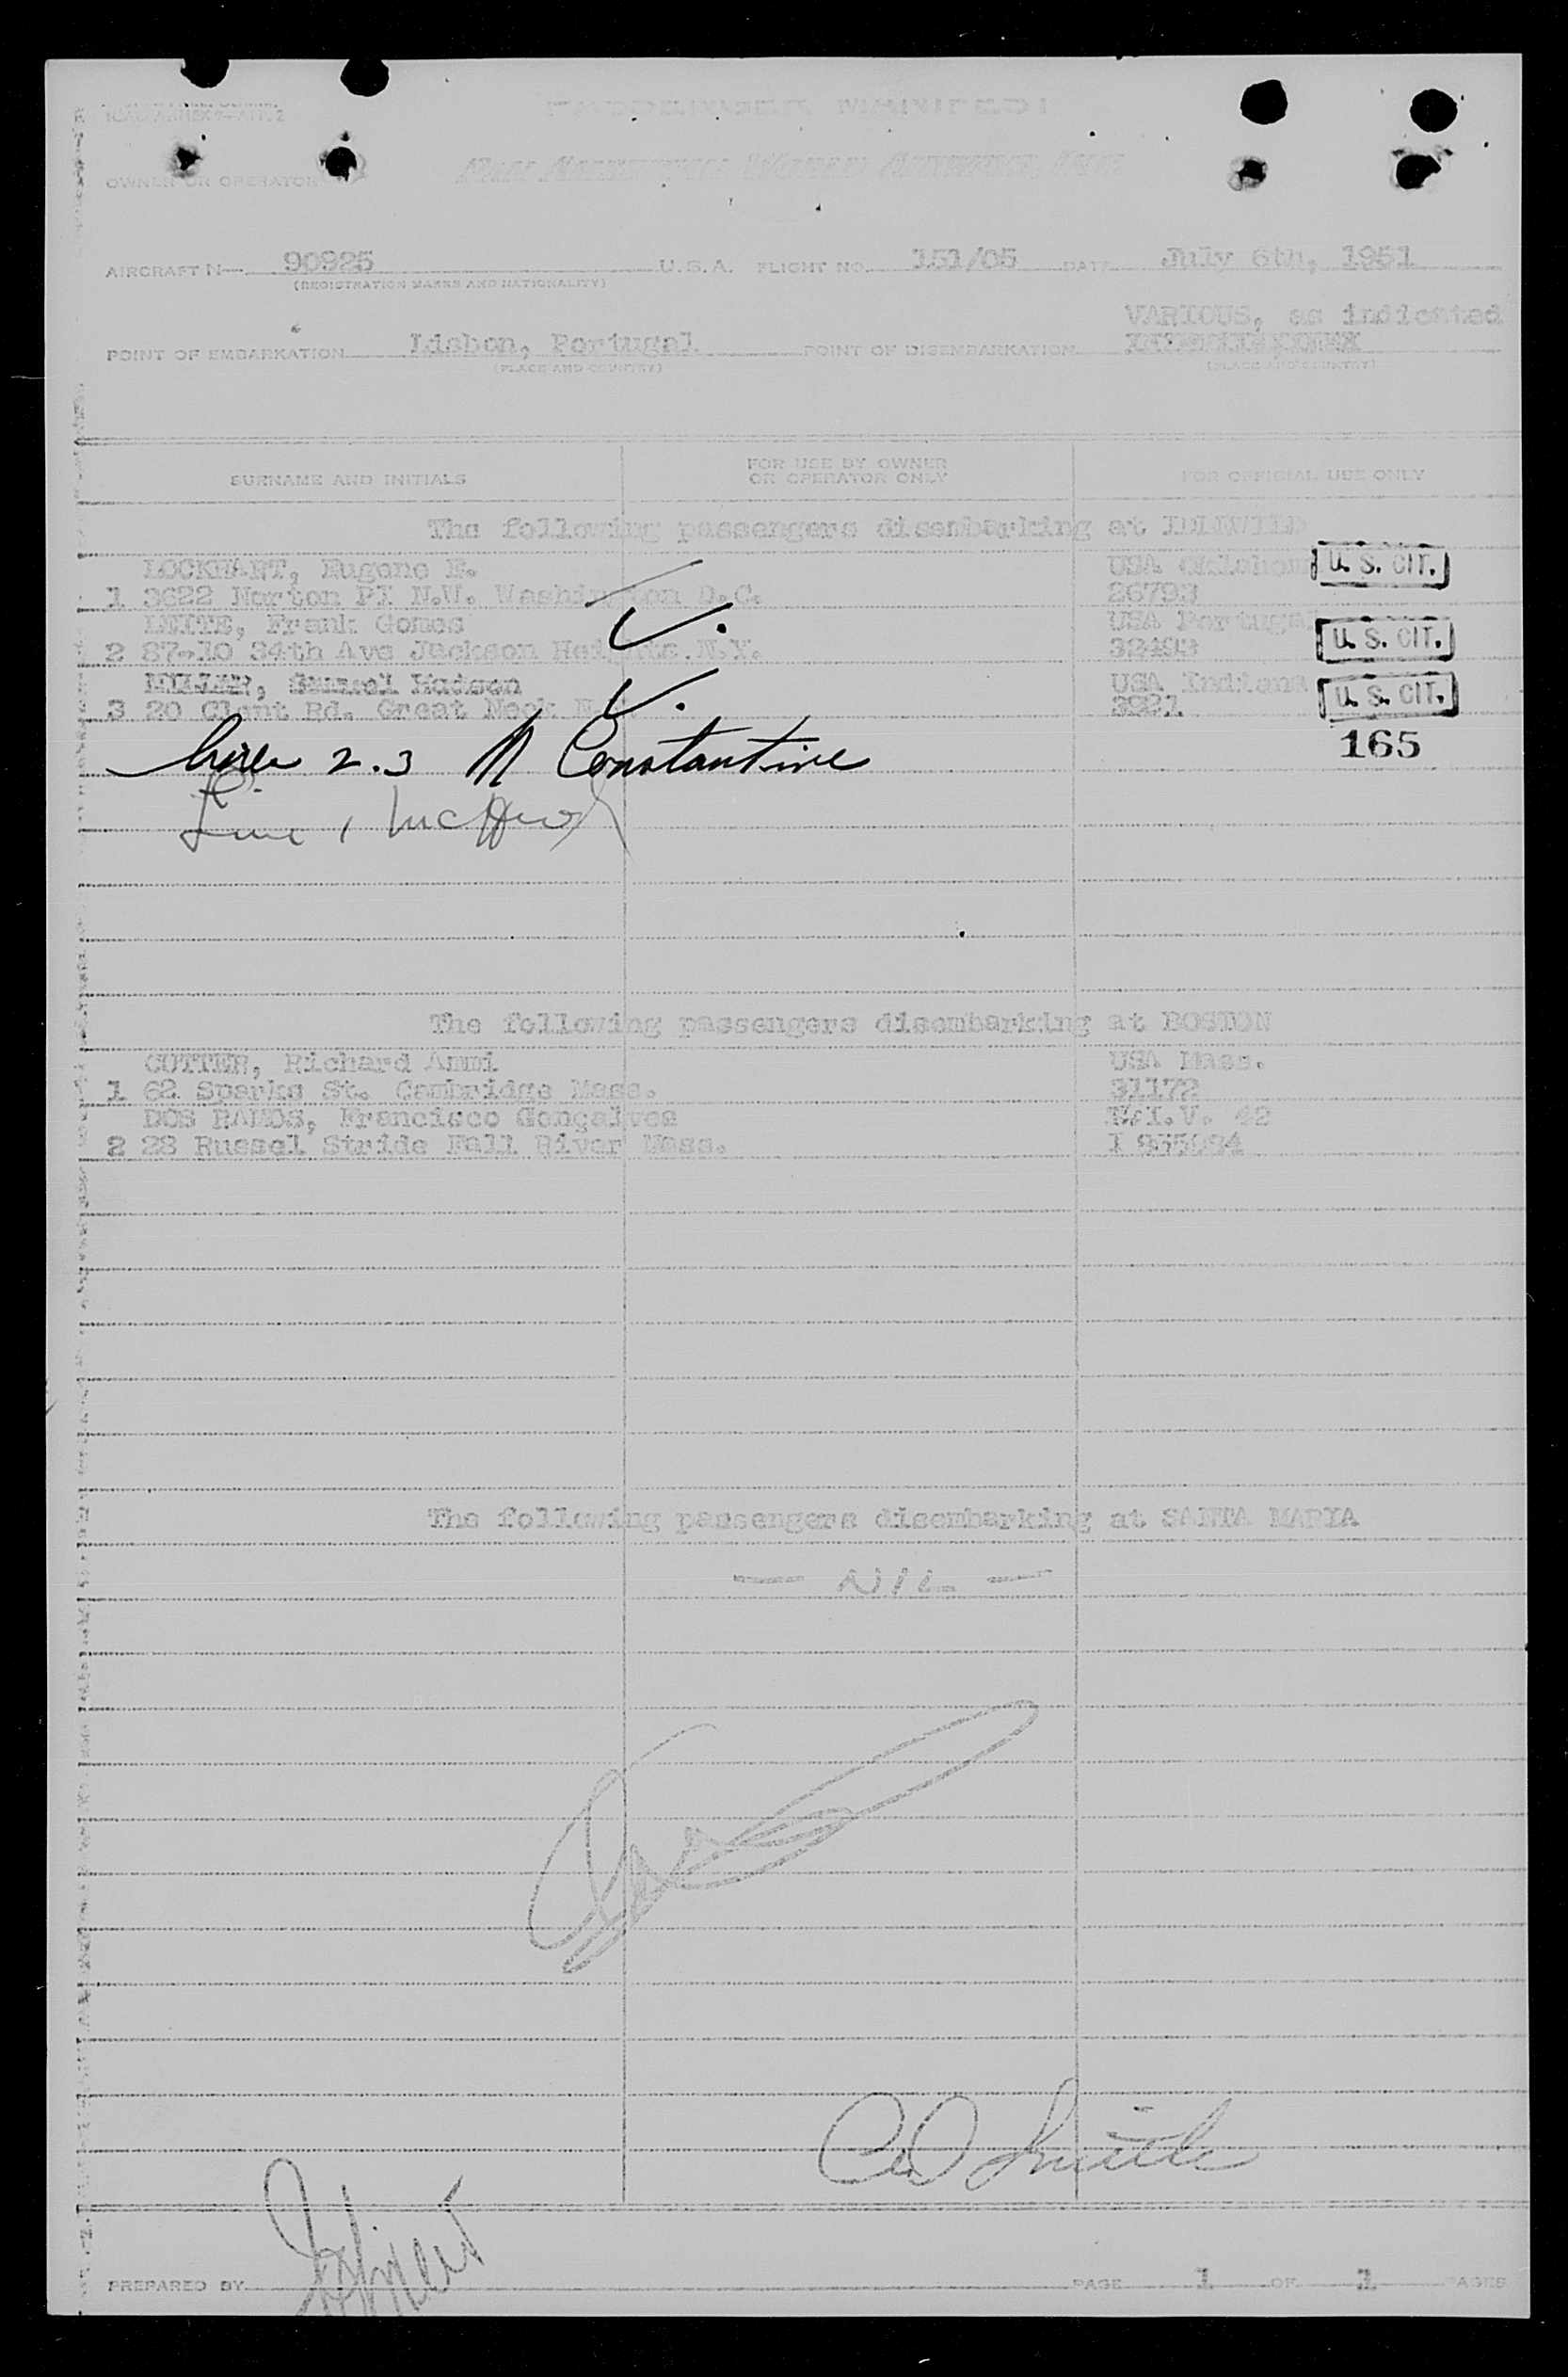 PASSENGER MANIFEST
OWNER OR OPERATOR Pan American World Airways, Inc.
AIRCRAFT N— 90925 U.S.A. FLIGHT NO. 151/05 DATE July 6th, 1951
(REGISTRATION MARKS AND NATIONALITY)
VARIOUS, as indicated
POINT OF EMBARKATION Lisbon, Portugal POINT OF DISEMBARKATION
(PLACE AND COUNTRY) (PLACE AND COUNTRY)
SURNAME AND INITIALS FOR USE BY OWNER OR OPERATOR ONLY FOR OFFICIAL USE ONLY
The following passengers disembarking at IDLEWILD
LOCKHART, Eugene E. USA Oklahom U. S. CIT.
1 3622 Norton Pl N.W. Washington D.C. 26793
LEITE, Frank Gomes USA Portuga U. S. CIT.
2 87-10 34th Ave Jackson Heights N.Y. 32493
MILLER, Samuel Hudson USA Indiana U. S. CIT.
3 20 Clent Rd. Great Neck N.Y. 3921
165
2.3 N Constantine
Line 1
The following passengers disembarking at BOSTON
CUTTER, Richard Ammi USA Mass.
1 62 Sparks St. Cambridge Mass. 31172
DOS RAMOS, Francisco Gonçalves 42
2 28 Russel Stride Fall River Mass.
The following passengers disembarking at SANTA MARIA
— NIL —
PREPARED BY PAGE 1 OF 1 PAGES